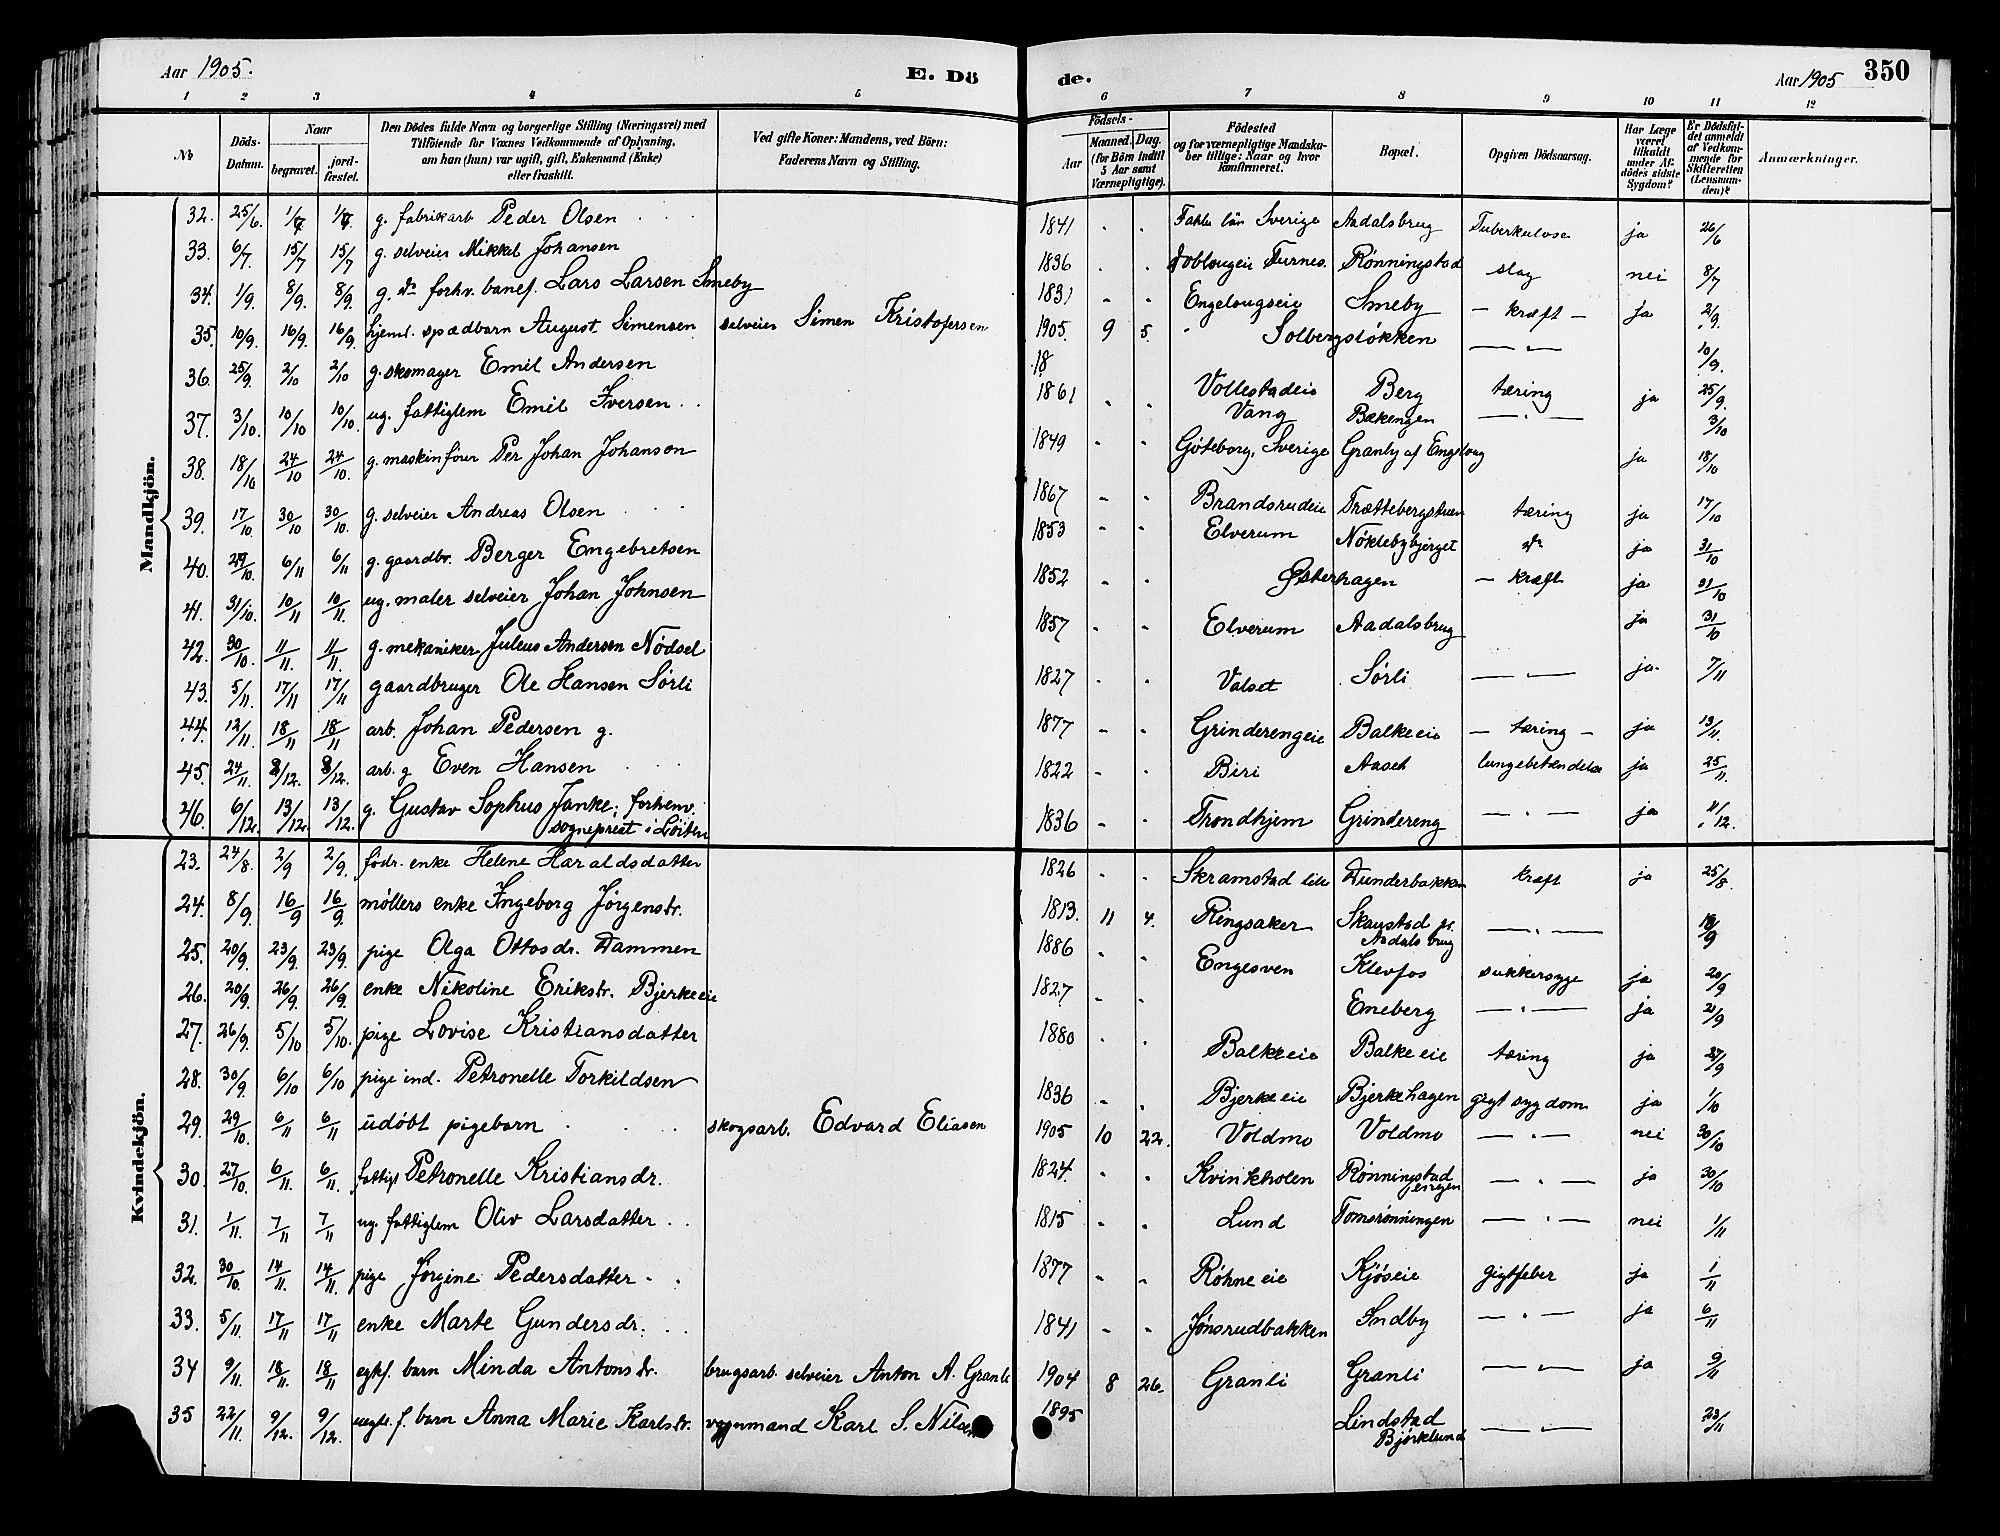 Aar 1905. E. Dö
de. Aar 1905 350
1 2 3 4 5 6 7 8 9 10 11 12
No
Döds-Datum.
Naar
begravet.
jord-fæstet.
Den Dödes fulde Navn og borgerlige Stilling (Næringsvei) med
Tilföiende for Voxnes Vedkommende af Oplysning,
om han (hun) var ugift, gift, Enkemand (Enke)
eller fraskilt.
Ved gifte Koner: Mandens, ved Börn:
Faderens Navn og Stilling.
Födsels-
Aar
Maaned. Dag.
(for Börn indtil
5 Aar samt
Værnepligtige).
Födested
og for værnepligtige Mandska-
ber tillige: Naar og hvor
konfirmeret.
Bopæl.
Opgiven Dödsaarsag.
Har Læge
været
tilkaldt
under Af-
dödes sidste
Sygdom?
Er Dödsfal-
det anmeldt
af Vedkom-
mende for
Skifteretten
(Lensman-
den)?
Anmærkninger.
Mandkjön.
32. 25/6 1/7 1/7 g. fabrikarb Peder Olsen 1841 Fahle län Sverige Aadalsbrug Tuberkulose ja 26/6
33. 6/7. 15/7 15/7 g. selveier Mikkel Johansen 1836 Doblougeie Furnes. Rønningstad slag nei 8/7
34. 1/9. 8/9. 8/9. g. do forhv. banef. Lars Larsen Smeby 1831 Engelaugseie Smeby - kræft - ja 2/9.
35. 10/9. 16/9. 16/9. hjeml. spædbarn August Simensen selveier Simen Kristofersen 1905. 9 5. Solbergsløkken — " — 10/9.
18
36. 25/9. 2/10 2/10 g. skomager Emil Andersen 1861 Vollestadeie Berg tæring ja 25/9.
37. 3/10. 10/10 10/10. ug. fattiglem Emil Iversen Vang Bækengen — " — 3/10
38. 18/10 24/10 24/10. g. maskinfører Per Johan Johanson 1849 Göteborg, Sverige Granly af Englaug ja 18/10
39. 17/10 30/10 30/10. g. selveier Andreas Olsen 1867 Brandsrudeie Trættebergstuen tæring ja 17/10
40. 29/10. 6/11 6/11 g. gaardbr. Berger Engebretsen 1853 Elverum Nöklebybjerget do ja 31/10
41. 31/10. 10/11 10/11. ug. maler selveier Johan Johnsen 1852 Østerhagen - kræft ja 31/10
42. 30/10. 11/11. 11/11. g. mekaniker Juleus Andersen Nödsel 1857 Elverum Aadalsbrug ja 31/10
43. 5/11. 17/11 17/11 gaardbruger Ole Hansen Sørli 1827 Valset Sørli — " — ja. 7/11
44. 12/11. 18/11 18/11 arb. Johan Pedersen g. 1877 Grinderengeie Balkeeie - tæring - ja 13/11.
45. 24/11. 2/12. 2/12. arb. g Even Hansen 1822 Biri Aaset lungebetændelse ja 25/11.
46. 6/12. 13/12. 13/12. g. Gustav Sophus Janke; forhenv. sogneprest i Løiten 1836 Trondhjem Grindereng — " — ja 11/12.
Kvindekjön.
23. 24/8. 2/9 2/9. fødr. enke Helene Haraldsdatter 1826 Skramstad lille Dunderbakken kræft ja 25/8.
24. 8/9. 16/9 16/9. møllers enke Ingeborg Jørgensdr. 1813. 11 4. Ringsaker Skaustad pr. Aadalsbrug — " — 18/9
25. 20/9. 23/9. 23/9. pige Olga Ottosdr. Dammen 1886 Engesven Klevfos sukkersyge ja 20/9
26. 20/9. 26/9. 26/9. enke Nikoline Eriksdr. Bjerkeeie 1827 Emeberg — " — ja 21/9
27. 26/9. 5/10 5/10. pige Lovise Kristiansdatter 1880 Balkeeie Balkeeie tæring ja 27/9
28. 30/9. 6/10 6/10 pige ind. Petronelle Torkildsen 1836 Bjerkeeie Bjerkehagen gigtsygdom ja 1/10
29. 29/10. 6/11 6/11 udöbt pigebarn skogsarb. Edvard Eliasen 1905 10 22. Voldmo Voldmo — " — nei 30/10
30. 27/10. 6/11. 6/11. fattigl Petronelle Kristiansdr. 1824. Kvinkholen Rønningstad — " — ja 30/10
31. 1/11. 7/11 7/11 ug. fattiglem Oliv Larsdatter 1815 Lund Tomsrønningen — " — nei 1/11
32. 30/10 14/11. 14/11. pige Jørgine Pedersdatter 1877 Røhneeie Kjøseie gigtfeber ja 1/11
33. 5/11. 17/11 17/11 enke Marte Gundersdr. 1841 Jønsrudbakken Sndby — " — ja 6/11
34 9/11. 18/11. 18/11 egtf. barn Minda Antonsdr. brugsarb. selveier Anton A. Granli 1904 8 26. Granli Granli — " — ja 9/11
35 22/11. 9/12. 9/12. uegte f. barn Anna Marie Karlsdr. vognmand Karl S. Nilsen 1895 Lindstad Bjørklund — " — 23/11